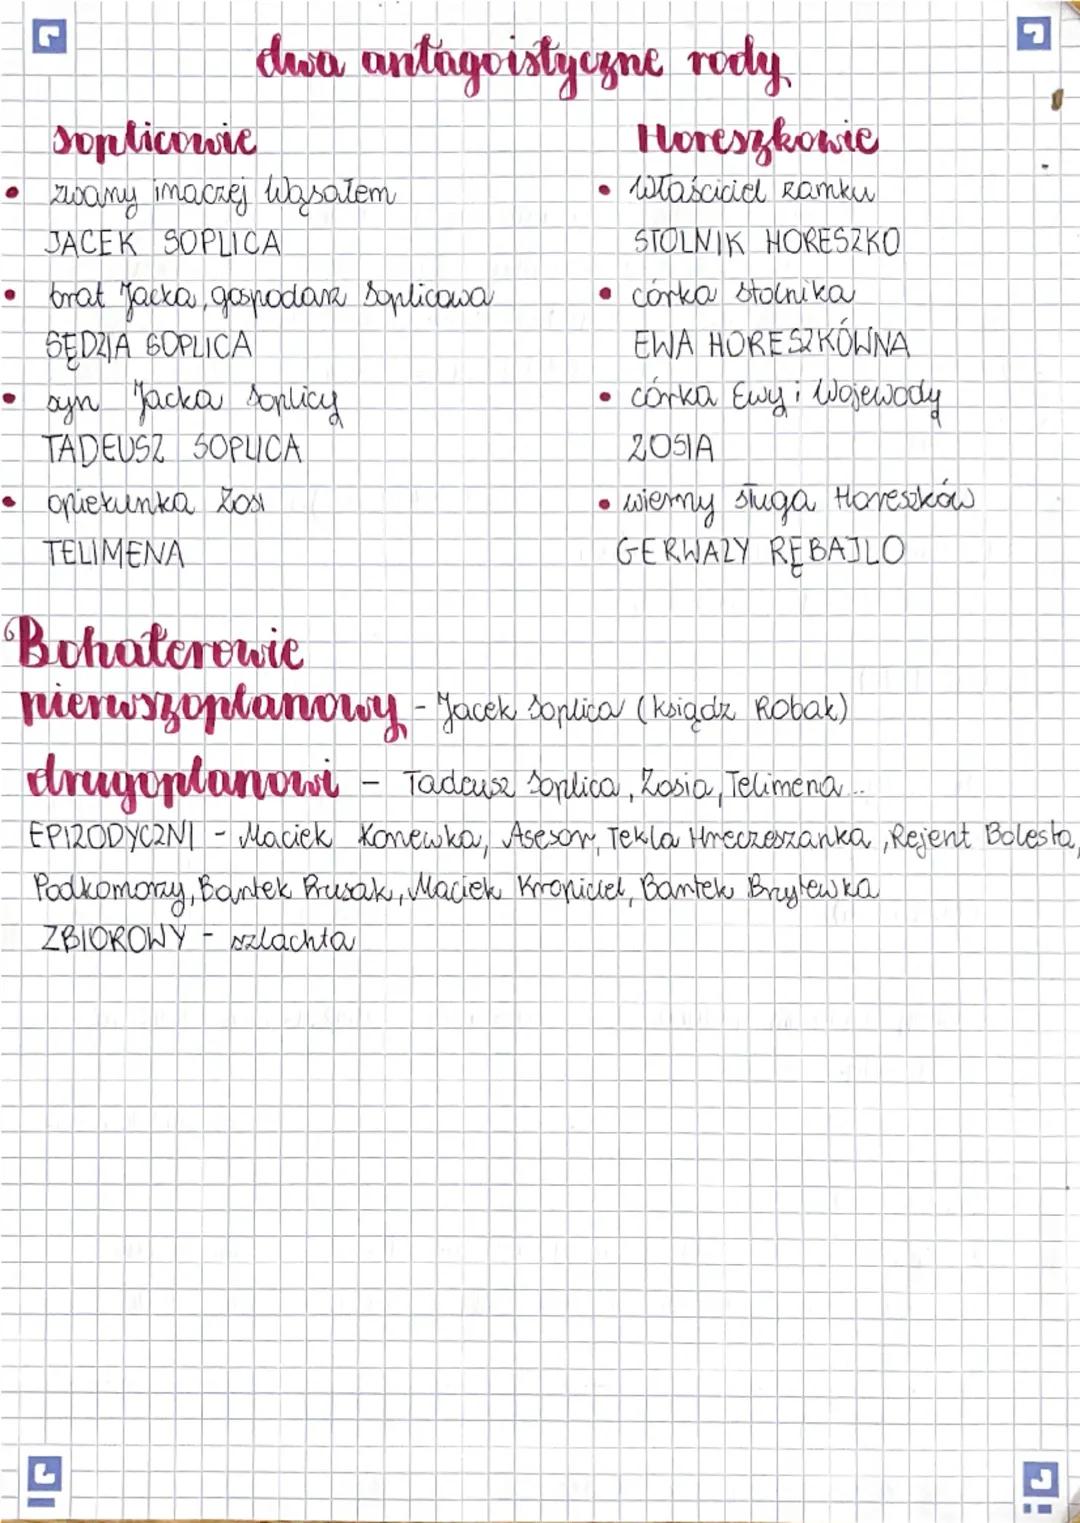 dwa antagoistyczne rody
Soplicowie
• zwany inaczej Wąsalem
JACEK SOPLICA
• brat Jacka, gospodarz Soplicowa
SĘDZIA SOPLICA
• syn Jacka Soplicy
TADEUSZ SOPLICA
• opiekunka Zosi
TELIMENA
Horeszkowie
• właściciel zamku
STOLNIK HORESZKO
• córka stolnika
EWA HORESZKÓWNA
• córka Ewy i Wojewody
ZOSIA
• wierny sługa Horeszków
GERWAZY RĘBAJŁO
6 Bohaterowie
pierwszoplanowy - Jacek Soplica (ksiądz Robak)
drugoplanowi - Tadeusz Soplica, Zosia, Telimena...
EPIZODYCZNI - Maciek Konewka, Asesor, Tekla Hreczeszanka, Rejent Bolesta,
Podkomorzy, Bartek Prusak, Maciek Kropiciel, Bartek Brzytewka
ZBIOROWY - szlachta